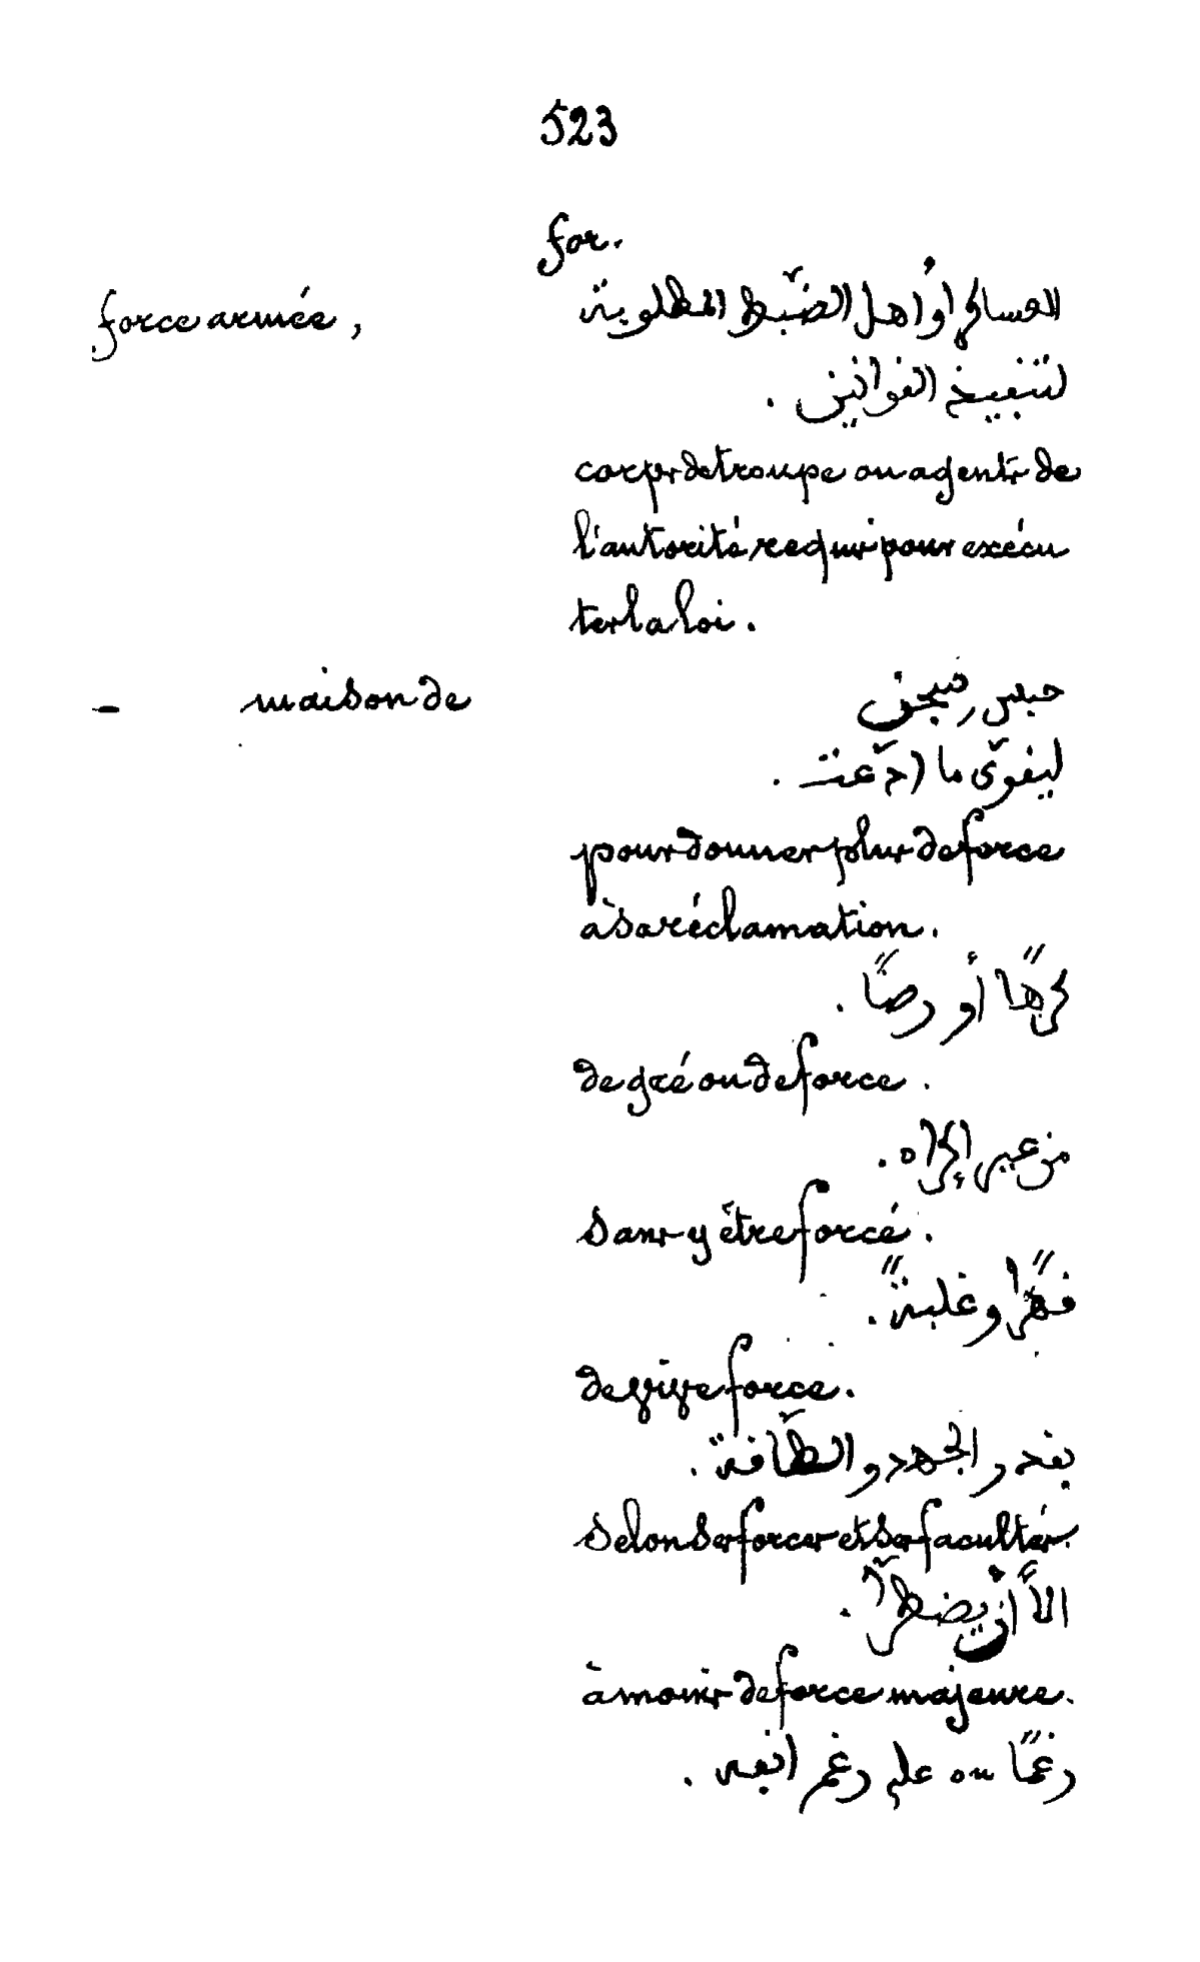 523
for.
force armée,
العساكر أو أهل الضّبط المطلوبة
لتنفيذ القوانين .
corps de troupe ou agents de
l'autorité, requis pour exécu
ter la loi.
— maison de
حبس, سجن
ليقوّى ما ادّعت .
pour donner plus de force
à sa réclamation.
كرهًا أو رضًا .
de gré ou de force .
من غير إكراه .
sans y être forcé .
قهرًا وغلبةً .
de vive force .
بقدر الجهد والطّاقة .
selon ses forces et ses facultés.
الاّ أنْ يضطرّ .
à moins de force majeure.
رغمًا ou على رغم انفه .